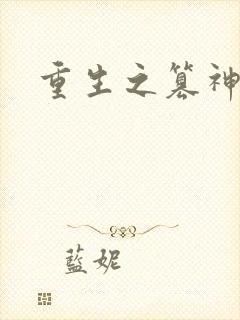 重生之篡神
藍妮